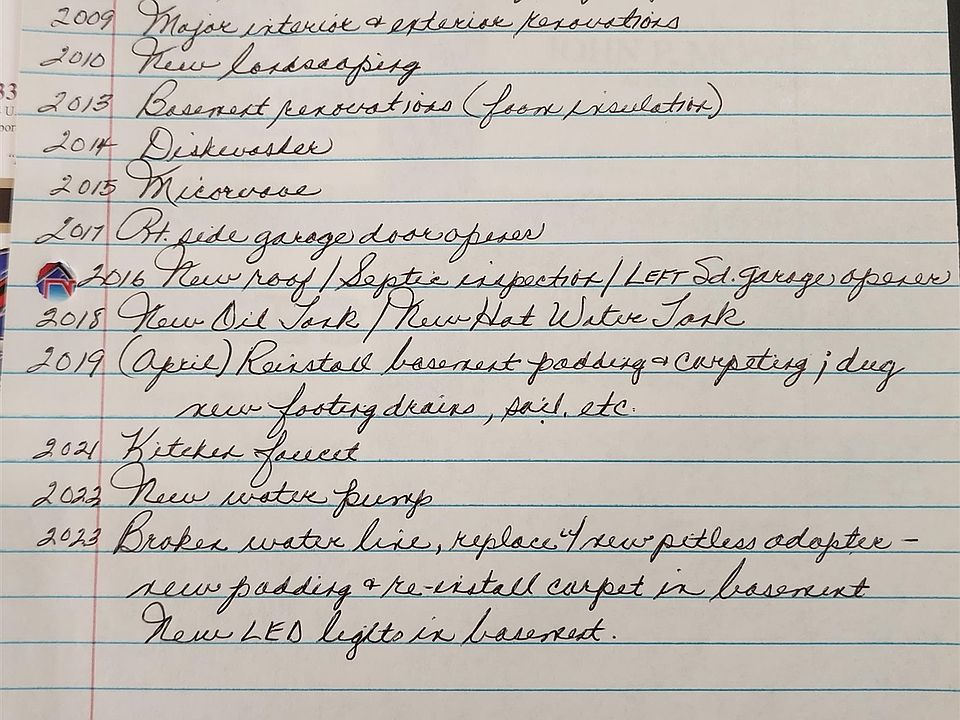 2009 Major interior & exterior renovations
2010 New landscaping
33
U.
por
2013 Basement renovations (foam insulation)
2014 Dishwasher
2015 Micorwave
2017 Rt. side garage door opener
2016 New roof / Septic inspection / LEFT Sd. garage opener
2018 New Oil Tank / New Hot Water Tank
2019 (April) Reinstall basement padding & carpeting ; dug
new footing drains, soil. etc.
2021 Kitchen faucet
2022 New water pump
2023 Broken water line, replace w/ new pitless adapter –
new padding & re-install carpet in basement
New LED lights in basement.